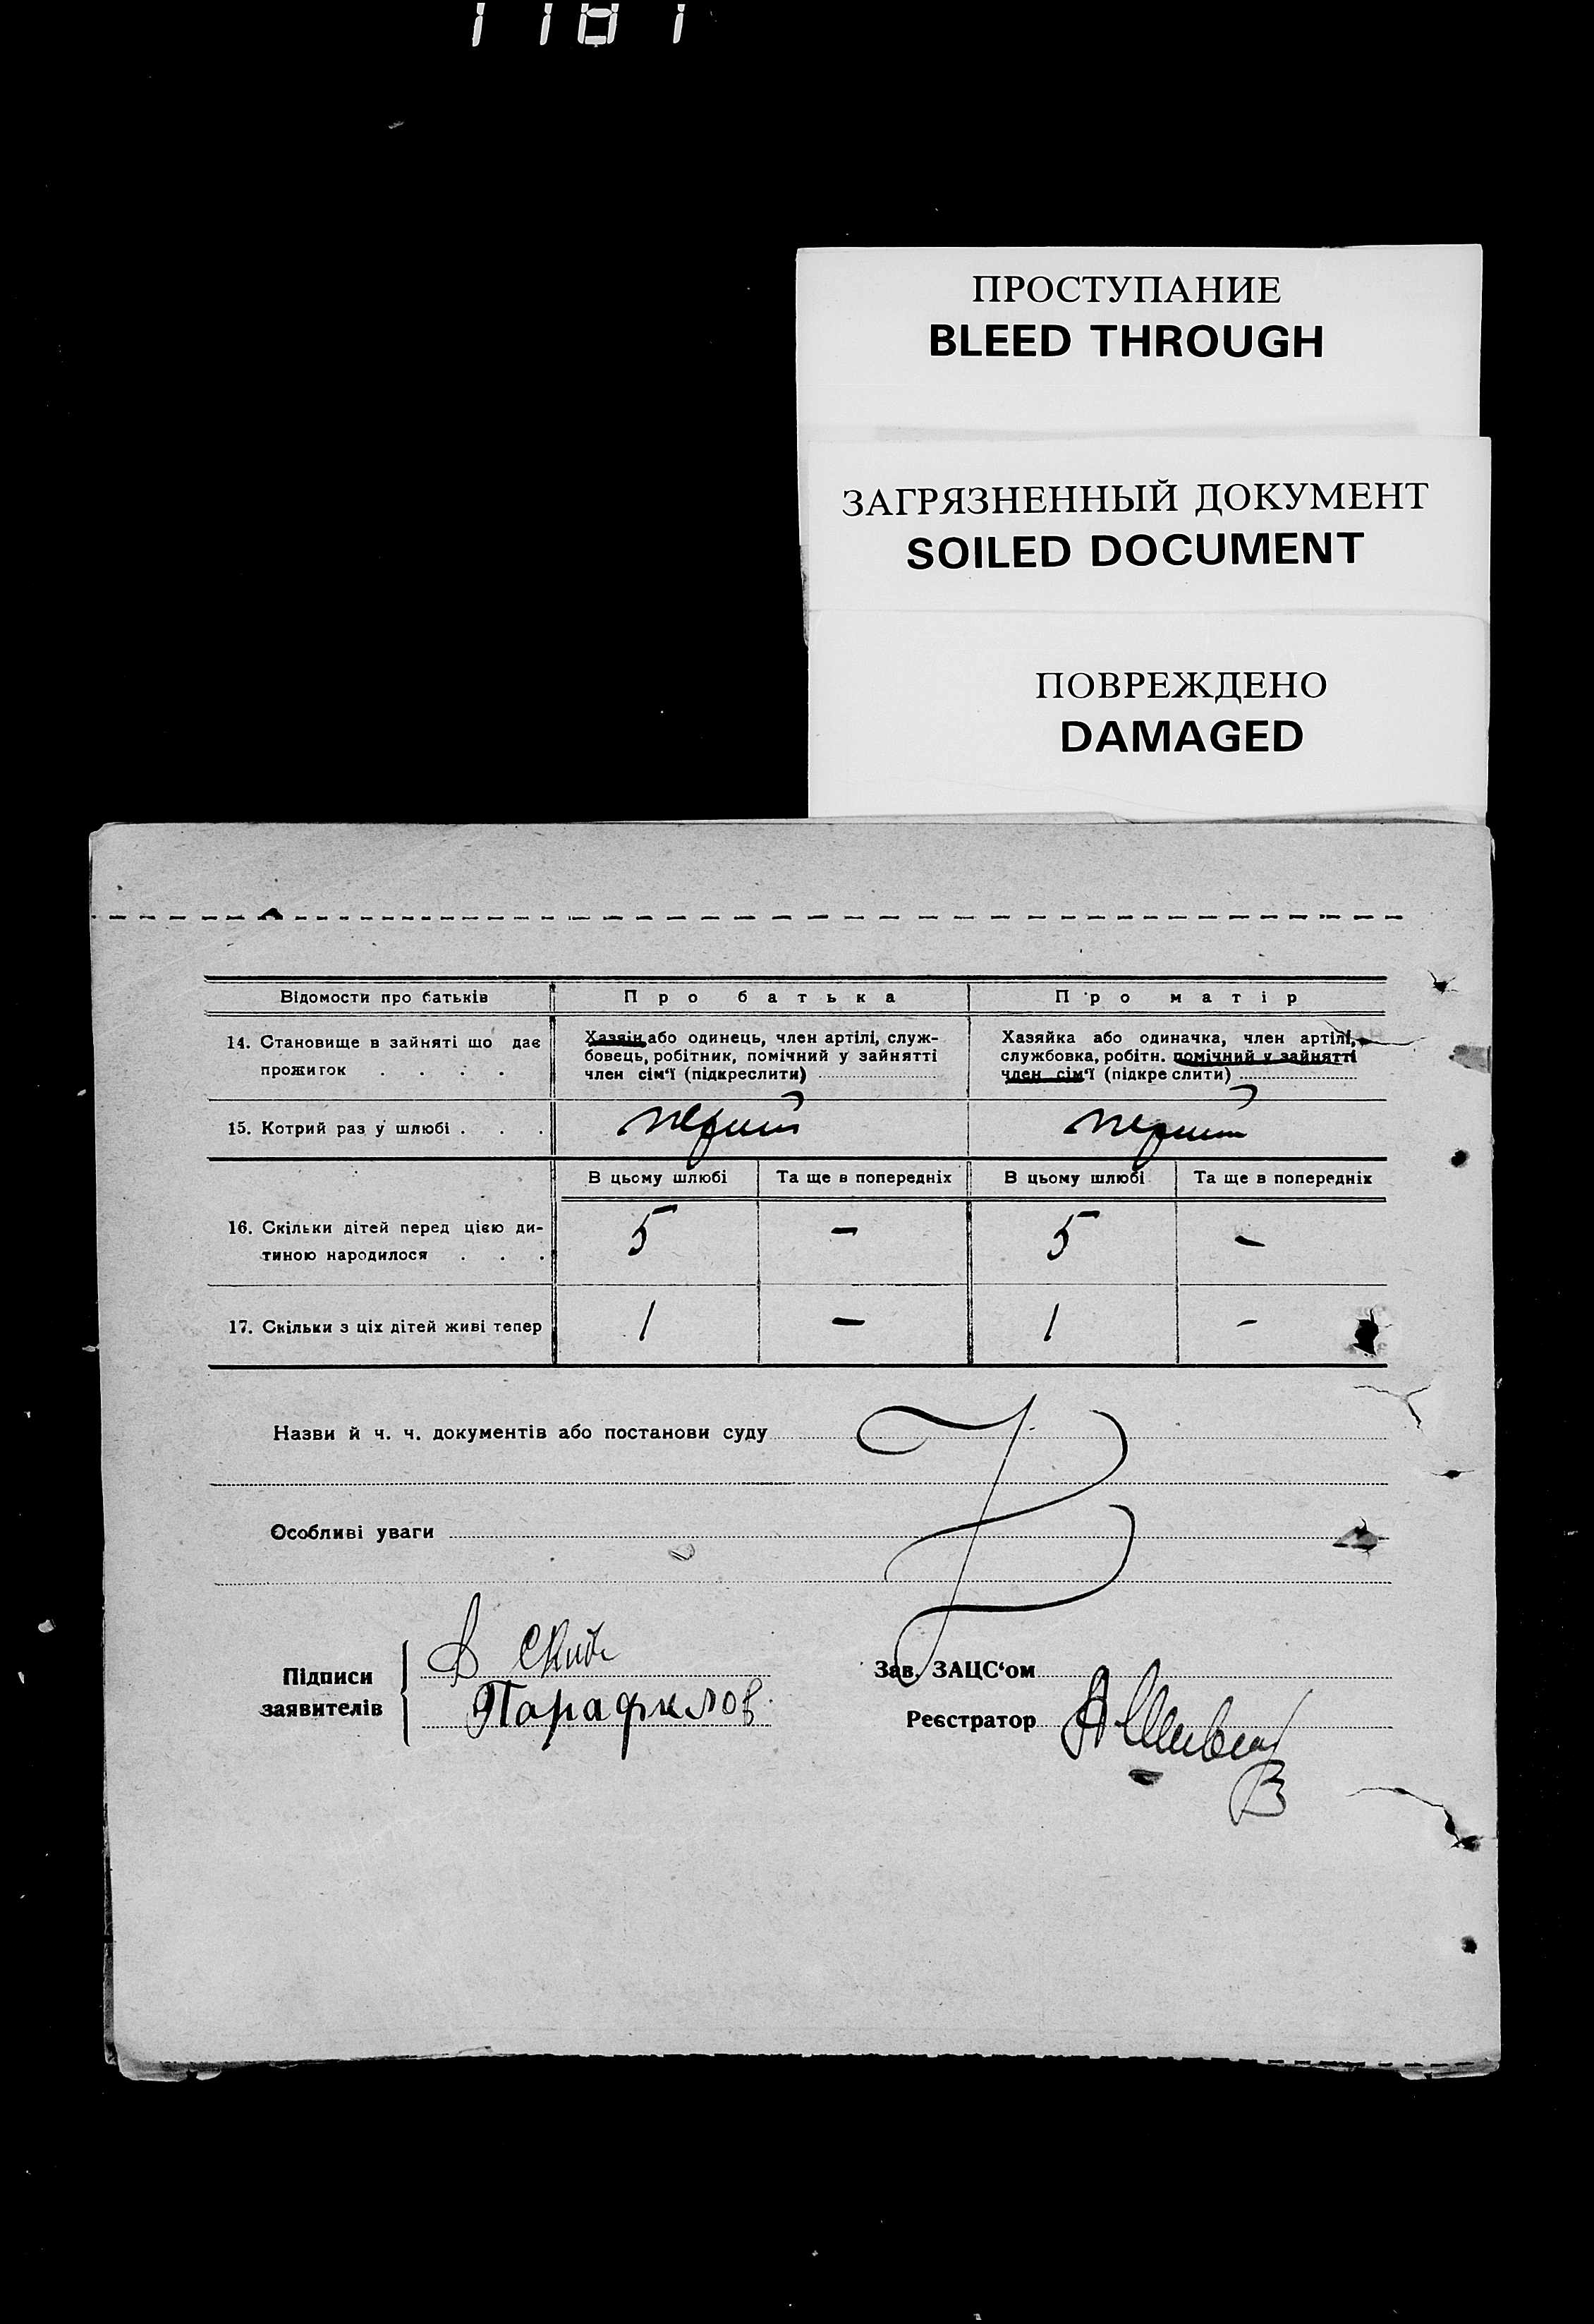 ПРОСТУПАНИЕ
BLEED THROUGH
ЗАГРЯЗНЕННЫЙ ДОКУМЕНТ
SOILED DOCUMENT
ПОВРЕЖДЕНО
DAMAGED
Відомости про батьків Про батька Про матір
14. Становище в зайняті що дає прожиток . . . .
Хазяін або одинець, член артілі, служ-
бовець, робітник, помічний у зайнятті
член сім'ї (підкреслити)
Хазяйка або одиначка, член артілі,
службовка, робітн. помічний у зайнятті
член сім'ї (підкреслити)
15. Котрий раз у шлюбі . . . перший перший
В цьому шлюбі Та ще в попередніх В цьому шлюбі Та ще в попередніх
16. Скільки дітей перед цією ди-
тиною народилося . . . 5 — 5 —
17. Скільки з ціх дітей живі тепер 1 — 1 -
Назви й ч. ч. документів або постанови суду
Особливі уваги
Підписи
заявителів
Парафилов
Зав. ЗАЦС'ом
Реєстратор